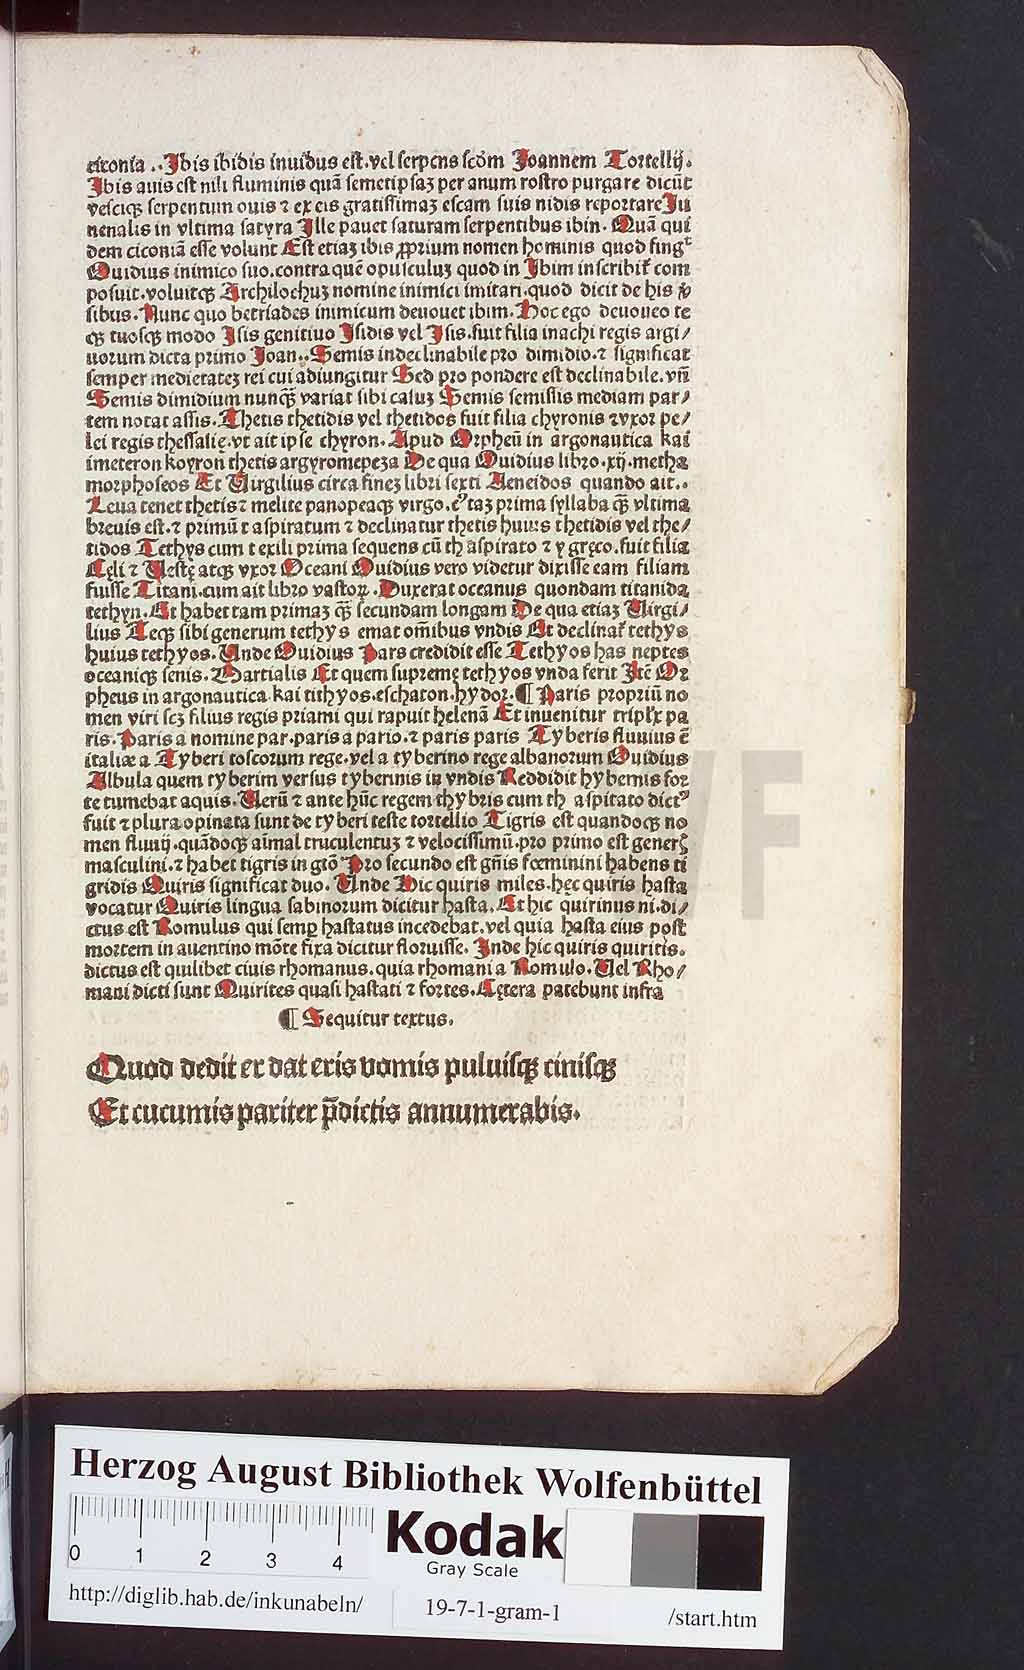 ciconia .. Ibis ibidis inuidus est. vel serpens scdm̄ Joannem Tortellij.
Ibis auis est nili fluminis quā semetipsaꝫ per anum rostro purgare dicūt
vesciꝗ serpentum ouis ⁊ ex eis gratissimaꝫ escam suis nidis reportare Ju
nenalis in vltima satyra Ille pauet saturam serpentibus ibin. Quā qui
dem ciconiā esse volunt Est etiaꝫ ibis ꝓprium nomen hominis quod fingᵗ
Ouidius inimico suo. contra quē opusculuꝫ quod in Ibim inscribit̄ com
posuit. voluitꝗ Archilochuꝫ nomine inimici imitari. quod dicit de his ꝟ
sibus. Nunc quo betriades inimicum deuouet ibim. Hoc ego deuoueo te
ꝗ tuosꝗ modo Isis genitiuo Isidis vel Isis. fuit filia inachi regis argi/
uorum dicta primo Joan.. Semis indeclinabile pro dimidio. ⁊ significat
semper medietateꝫ rei cui adiungitur Sed pro pondere est declinabile. vn̄
Semis dimidium nunꝗ̄ variat sibi casuꝫ Semis semissis mediam par/
tem notat assis. Thetis thetidis vel thetidos fuit filia chyronis ⁊ vxor pe/
lei regis thessalię. vt ait ipse chyron. Apud Orpheū in argonautica kai
imeteron koyron thetis argyromepeza De qua Ouidius libro. xij. metha
morphoseos Et Virgilius circa fineꝫ libri sexti Aeneidos quando ait..
Leua tenet thetis ⁊ melite panopeaꝗ virgo. eꝰ taꝫ prima syllaba ꝗ̄ vltima
breuis est. ⁊ primū t aspiratum ⁊ declinatur thetis huius thetidis vel the/
tidos Tethys cum t exili prima sequens cū th aspirato ⁊ y gręco. fuit filia
Cęli ⁊ Vestę atꝗ vxor Oceani Ouidius vero videtur dixisse eam filiam
fuisse Titani. cum ait libro vastoꝝ. Duxerat oceanus quondam titanida
tethyn. Et habet tam primaꝫ ꝗ̄ secundam longam De qua etiaꝫ Virgi/
lius Teꝗ sibi generum tethys emat om̄ibus vndis Et declinat̄ tethys
huius tethyos. Unde Ouidius Pars credidit esse Tethyos has neptes
oceaniꝗ senis. Martialis Et quem supremę tethyos vnda ferit Itē Or
pheus in argonautica. kai tithyos. eschaton. hydor. ¶ Paris propriū no
men viri scꝫ filius regis priami qui rapuit helenā Et inuenitur tripl̄x pa
ris. Paris a nomine par. paris a pario. ⁊ paris paris Tyberis fluuius ē
italiæ a Tyberi toscorum rege. vel a tyberino rege albanorum Ouidius
Albula quem tyberim versus tyberinis in vndis Reddidit hybernis for
te tumebat aquis. Verū ⁊ ante hūc regem thybris cum th aspitato dictꝰ
fuit ⁊ plura opinata sunt de tyberi teste tortellio Tigris est quandoꝗ no
men fluuij. quādoꝗ aimal truculentuꝫ ⁊ velocissimū. pro primo est generꝭ
masculini. ⁊ habet tigris in gtō Pro secundo est gn̄is fœminini habens ti
gridis Quiris significat duo. Unde Hic quiris miles. hęc quiris hasta
vocatur Quiris lingua sabinorum dicitur hasta. Et hic quirinus ni. di/
ctus est Romulus qui semꝑ hastatus incedebat. vel quia hasta eius post
mortem in auentino mōte fixa dicitur floruisse. Inde hic quiris quiritis.
dictus est quilibet ciuis rhomanus. quia rhomani a Romulo. Vel Rho/
mani dicti sunt Quirites quasi hastati ⁊ fortes. Cętera patebunt infra
¶ Sequitur textus.
Quod dedit er dat eris vomis puluisꝗ cinisꝗ
Et cucumis pariter p̄dictis annumerabis.
Herzog August Bibliothek Wolfenbüttel
0 1 2 3 4
Kodak
Gray Scale
http://diglib.hab.de/inkunabeln/
19-7-1-gram-1
/start.htm